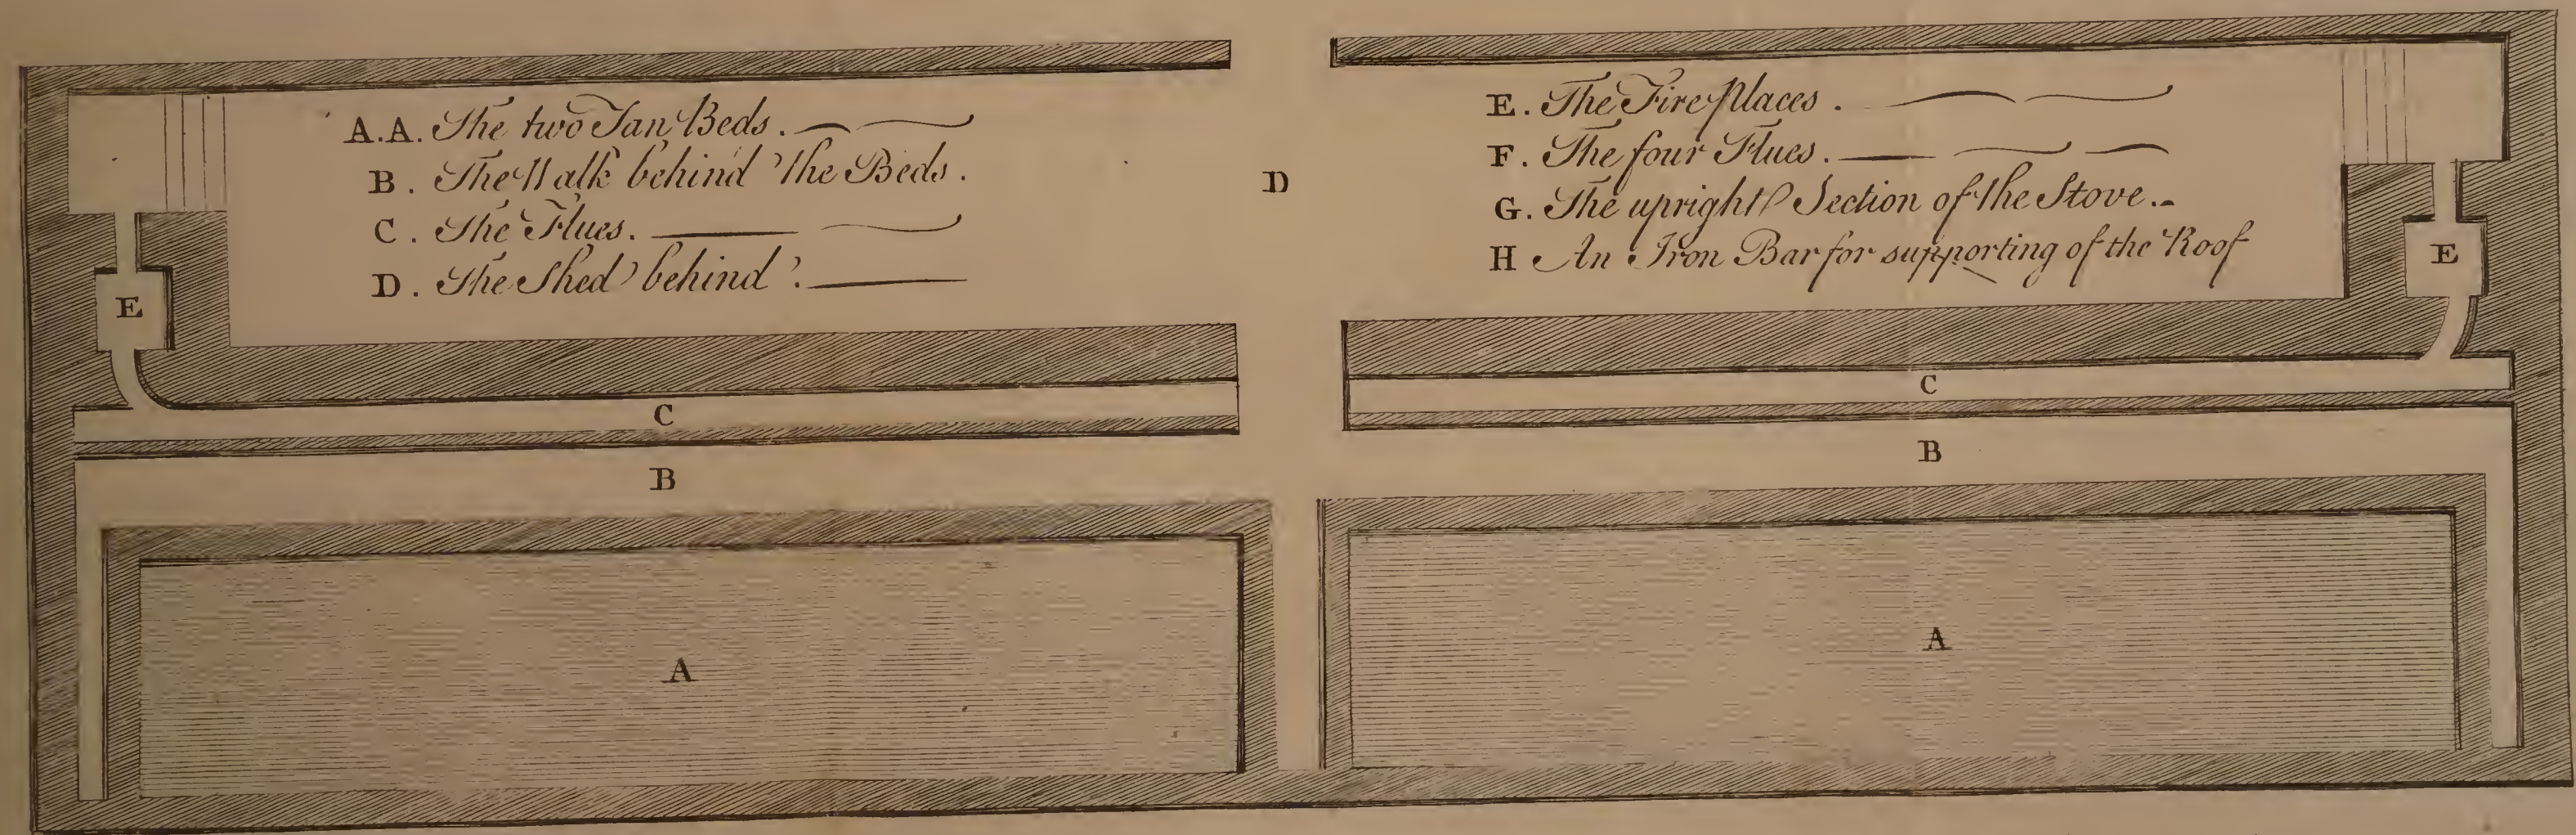 A.A. The two Tan Beds.
B. The Walk behind the Beds.
C. The Flues.
D. The Shed behind.
D
E. The Fire Places.
F. The four Flues.
G. The upright Section of the Stove.
H An Iron Bar for supporting of the Roof
E
E
C
C
B
B
A
A